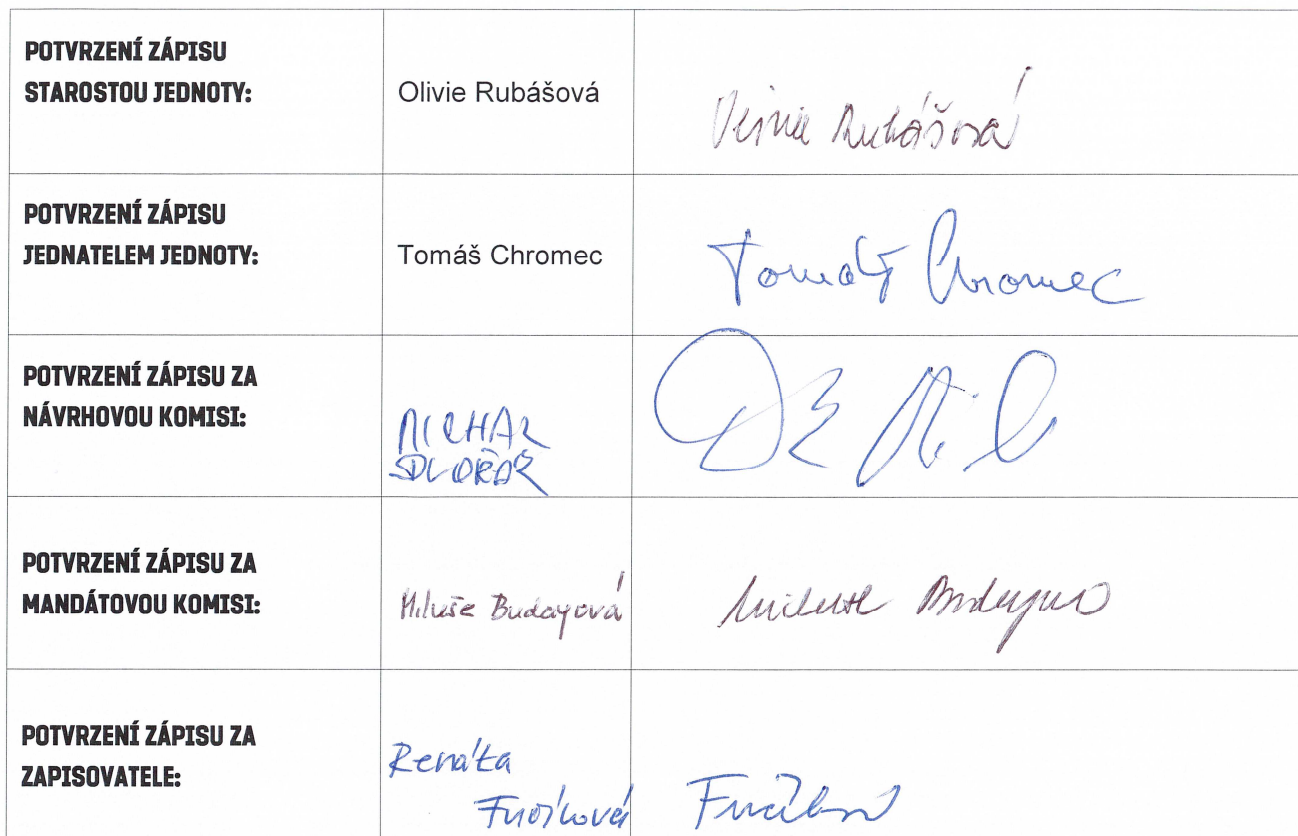 POTVRZENÍ ZÁPISU
STAROSTOU JEDNOTY:
Olivie Rubášová
Olivie Rubášová
POTVRZENÍ ZÁPISU
JEDNATELEM JEDNOTY:
Tomáš Chromec
Tomáš Chromec
POTVRZENÍ ZÁPISU ZA
NÁVRHOVOU KOMISI:
MICHAL
DVOŘÁK
POTVRZENÍ ZÁPISU ZA
MANDÁTOVOU KOMISI:
Miluše Budayová
POTVRZENÍ ZÁPISU ZA
ZAPISOVATELE:
Renáta
Fučíková